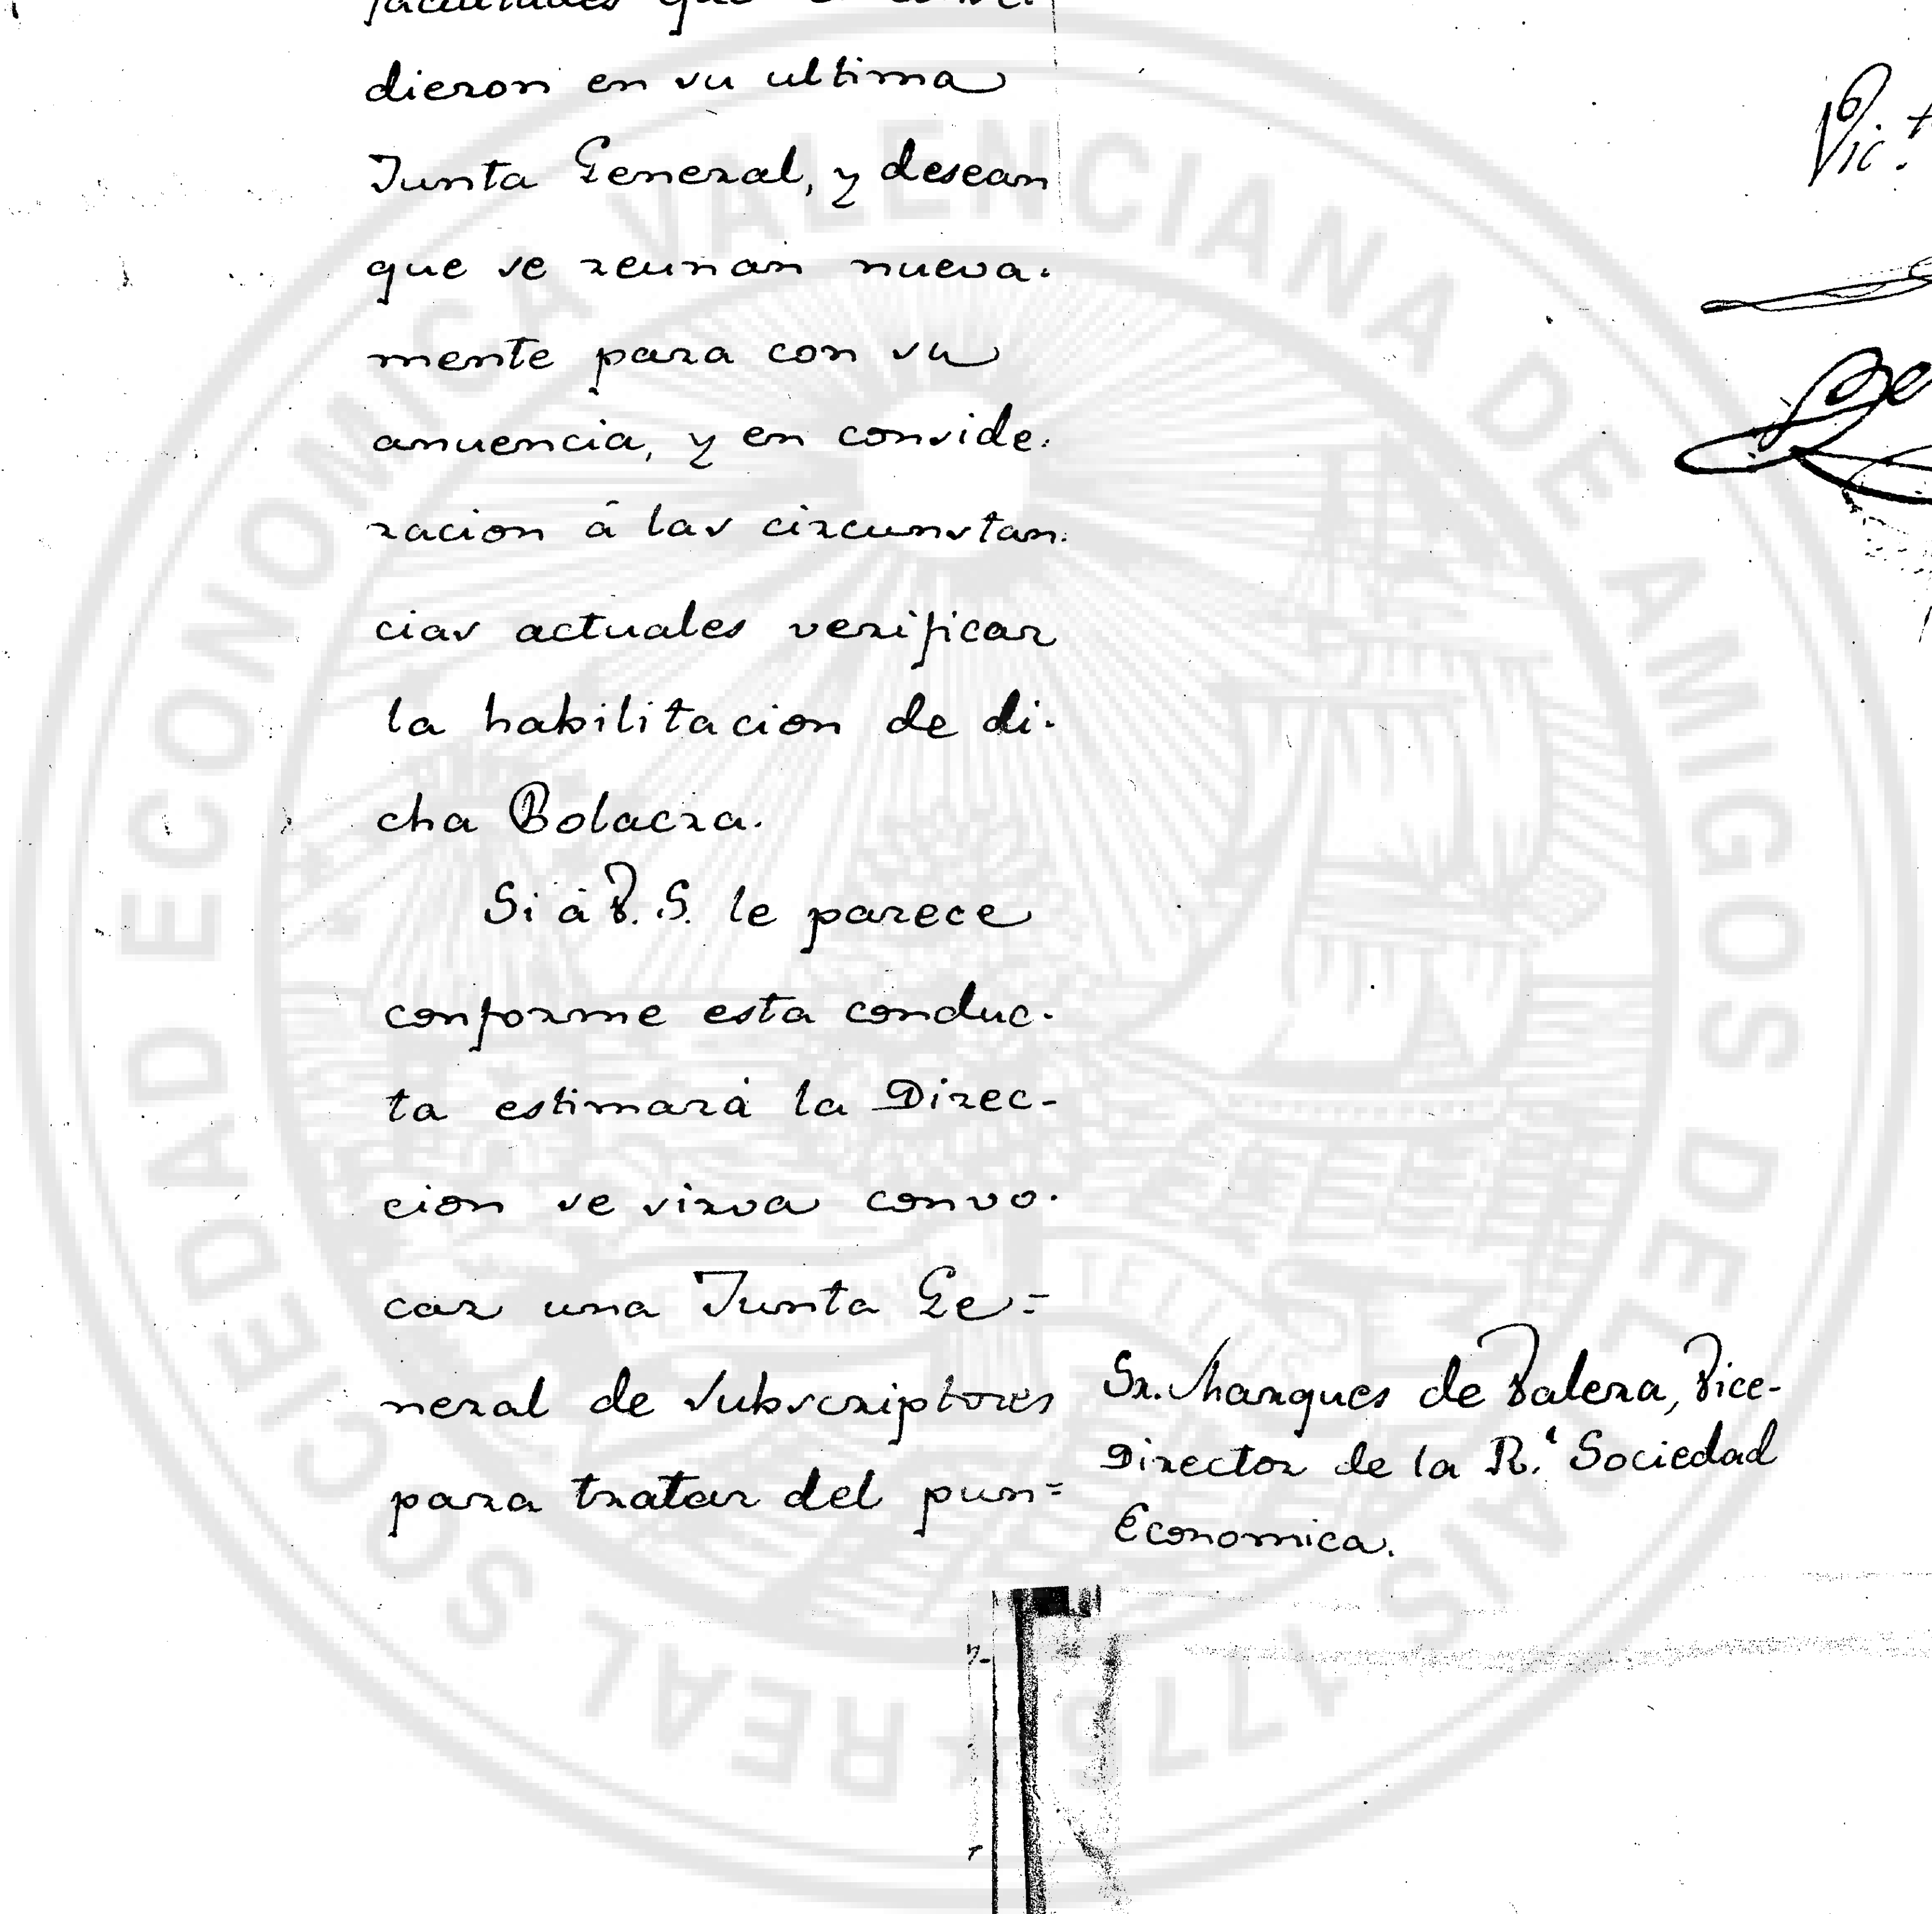 facultades que
dieron en su ultima
Junta General, y desean
que se reunan nueva-
mente para con su
anuencia, y en conside-
racion á las circunstan-
cias actuales verificar
la habilitacion de di-
cha Bolacra.
Si á V. S. le parece
conforme esta conduc-
ta estimará la Direc-
cion se sirva convo-
car una Junta Ge=
neral de subscriptores
para tratar del pun=
Sr. Marques de Valera, Vice-
Director de la R.l Sociedad
Economica.
Vic.t
REAL SOCIEDAD ECONOMICA VALENCIANA DE AMIGOS DEL PAIS 1776